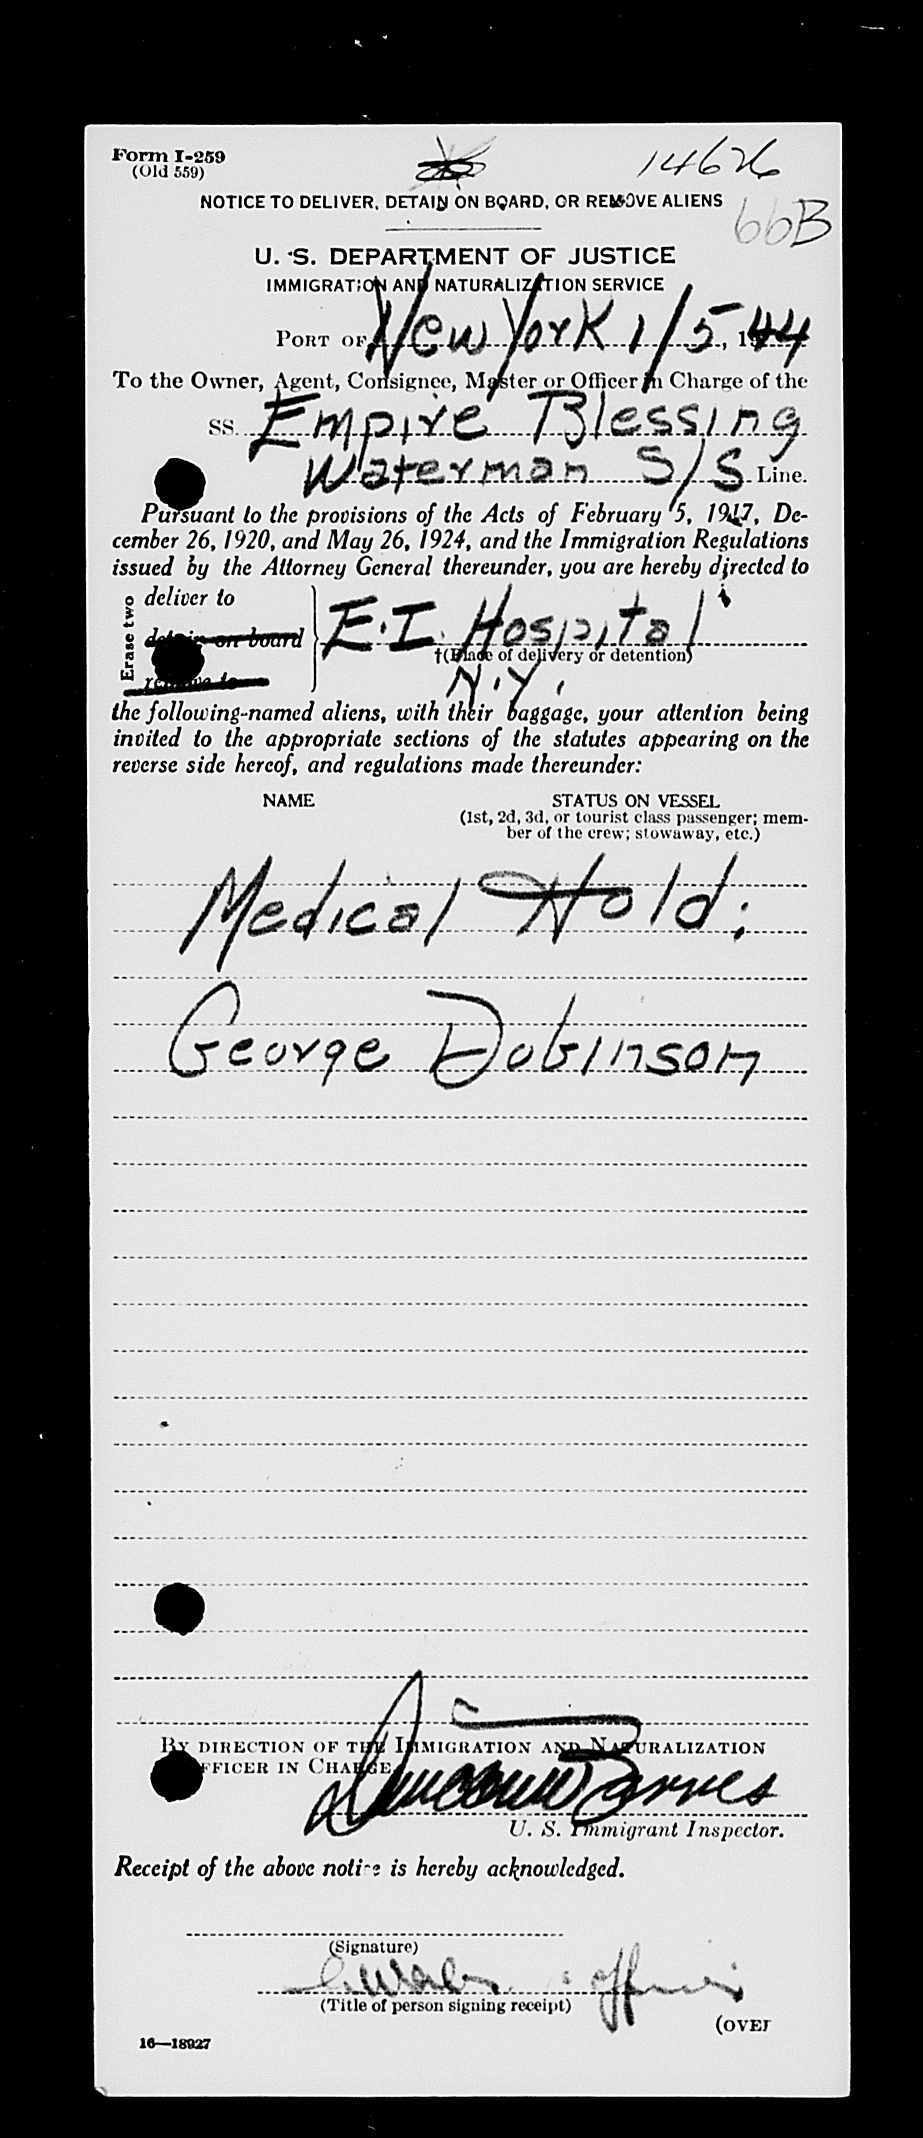 Form I-259
(Old 559)
14626
NOTICE TO DELIVER, DETAIN ON BOARD, OR REMOVE ALIENS
66B
U. S. DEPARTMENT OF JUSTICE
IMMIGRATION AND NATURALIZATION SERVICE
PORT OF New York 1/5, 1944
To the Owner, Agent, Consignee, Master or Officer in Charge of the
SS. Empire Blessing
Waterman S/S Line.
Pursuant to the provisions of the Acts of February 5, 1917, De-
cember 26, 1920, and May 26, 1924, and the Immigration Regulations
issued by the Attorney General thereunder, you are hereby directed to
Erase two
deliver to
detain on board
remove to
E.I. Hospital
†(Place of delivery or detention)
N.Y.
the following-named aliens, with their baggage, your attention being
invited to the appropriate sections of the statutes appearing on the
reverse side hereof, and regulations made thereunder:
NAME STATUS ON VESSEL
(1st, 2d, 3d, or tourist class passenger; mem-
ber of the crew; stowaway, etc.)
Medical Hold:
George Dobinson
BY DIRECTION OF THE IMMIGRATION AND NATURALIZATION
OFFICER IN CHARGE
Barnes
U. S. Immigrant Inspector.
Receipt of the above notice is hereby acknowledged.
(Signature)
officer
(Title of person signing receipt)
(OVER
16—18927